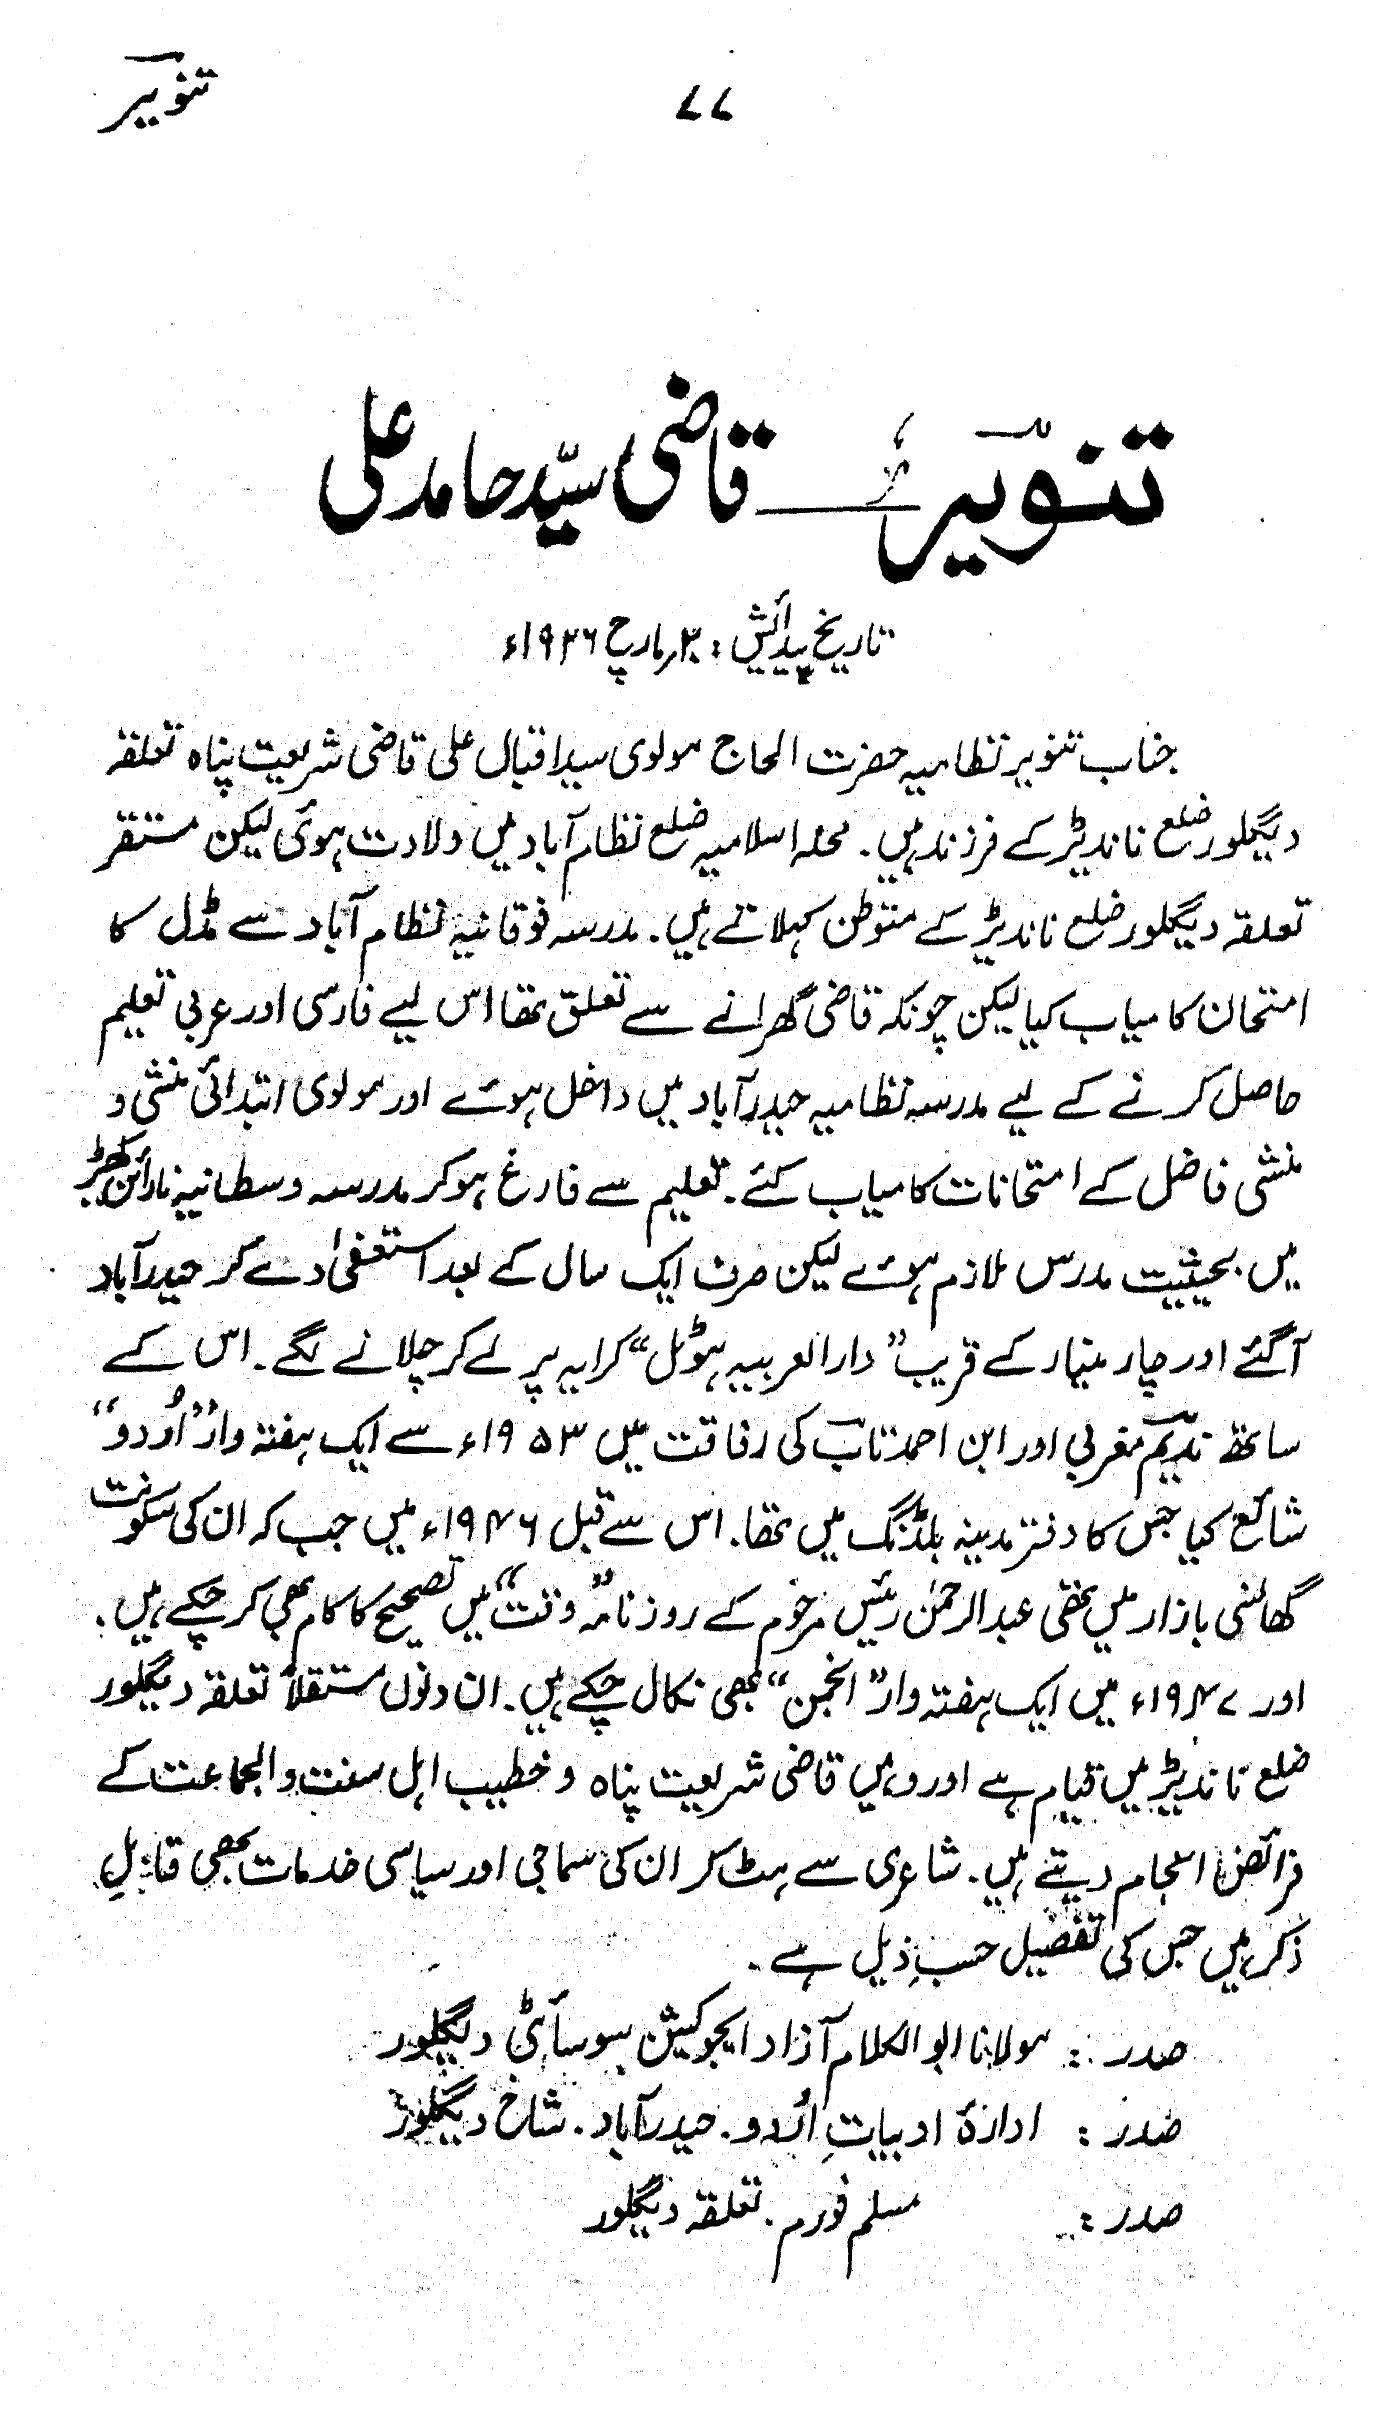 ۷۷
تنویر
تنویر — قاضی سیّد حامد علی
تاریخ پیدائش : ۳؍مارچ ۱۹۲۶ء
جناب تنویر نظامیہ حضرت الحاج مولوی سید اقبال علی قاضی شریعت پناہ تعلقہ
دیگلور ضلع ناندیڑ کے فرزند ہیں۔ محلہ اسلامیہ ضلع نظام آباد میں ولادت ہوئی لیکن مستقر
تعلقہ دیگلور ضلع ناندیڑ کے متوطن کہلاتے ہیں۔ مدرسہ فوقانیہ نظام آباد سے مڈل کا
امتحان کامیاب کیا لیکن چونکہ قاضی گھرانے سے تعلق تھا اس لیے فارسی اور عربی تعلیم
حاصل کرنے کے لیے مدرسہ نظامیہ حیدرآباد میں داخل ہوئے اور مولوی ابتدائی منشی و
منشی فاضل کے امتحانات کامیاب کئے۔ تعلیم سے فارغ ہوکر مدرسہ وسطانیہ نارائن کھیڑ
میں بحیثیت مدرس ملازم ہوئے لیکن صرف ایک سال کے بعد استعفیٰ دے کر حیدرآباد
آگئے اور چار مینار کے قریب ”دارالعربیہ ہوٹل“ کرایہ پر لے کر چلانے لگے۔ اس کے
ساتھ ندیم مغربی اور ابن احمد تاب کی رفاقت میں ۱۹۵۳ء سے ایک ہفتہ وار ”اُردو“
شائع کیا جس کا دفتر مدینہ بلڈنگ میں تھا۔ اس سے قبل ۱۹۴۶ء میں جب کہ ان کی سکونت
گھانسی بازار میں تھی عبدالرحمٰن رئیس مرحوم کے روزنامہ ”وقت“ میں تصحیح کا کام بھی کر چکے ہیں۔
اور ۱۹۴۷ء میں ایک ہفتہ وار ”انجمن“ بھی نکال چکے ہیں۔ ان دنوں مستقلاً تعلقہ دیگلور
ضلع ناندیڑ میں قیام ہے اور وہیں قاضی شریعت پناہ و خطیب اہل سنت والجماعت کے
فرائض انجام دیتے ہیں۔ شاعری سے ہٹ کر ان کی سماجی اور سیاسی خدمات بھی قابلِ
ذکر ہیں جس کی تفصیل حسبِ ذیل ہے۔
صدر : مولانا ابوالکلام آزاد ایجوکیشن سوسائٹی دیگلور
صدر : ادارۂ ادبیاتِ اُردو۔ حیدرآباد۔ شاخ دیگلور
صدر : مسلم فورم۔ تعلقہ دیگلور